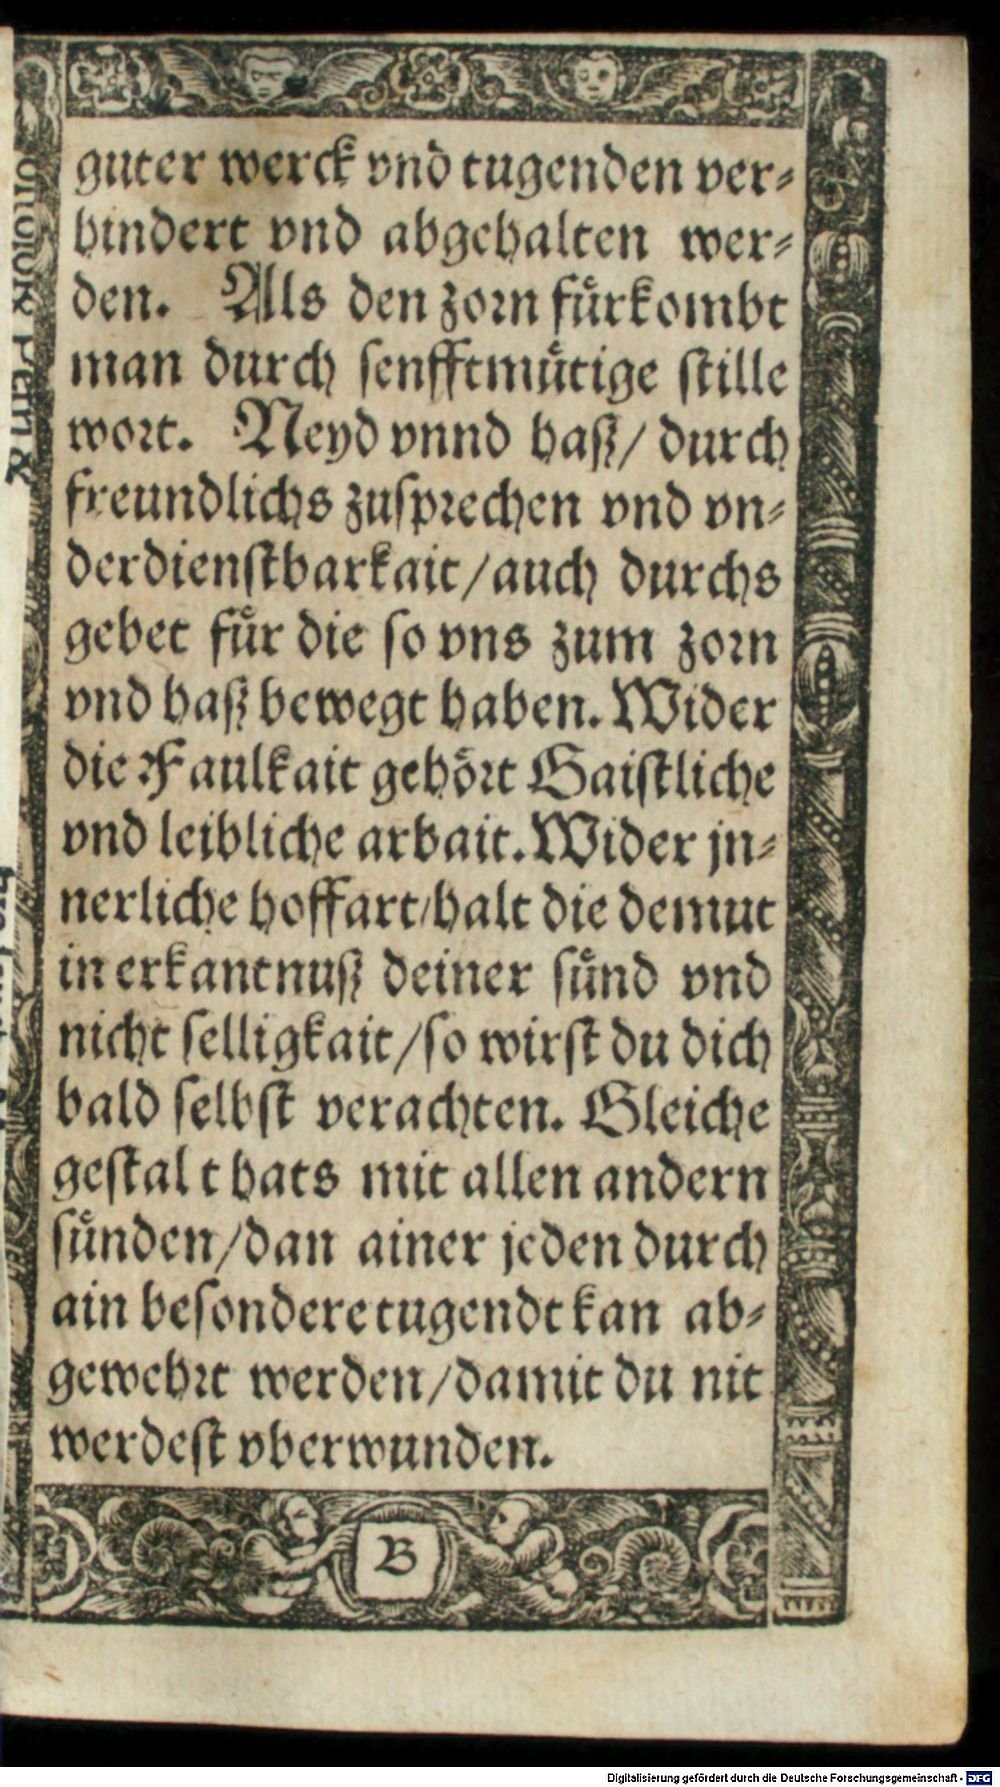 guter werck vnd tugenden ver⸗
hindert vnd abgehalten wer⸗
den. Als den zorn fuͤrkombt
man durch senfftmuͤtige stille
wort. Neyd vnnd haß/ durch
freundlichs zusprechen vnd vn⸗
derdienstbarkait/auch durchs
gebet fuͤr die so vns zum zorn
vnd haß bewegt haben. Wider
die Faulkait gehoͤrt Gaistliche
vnd leibliche arbait. Wider jn⸗
nerliche hoffart/halt die demut
in erkantnuß deiner suͤnd vnd
nicht selligkait/so wirst du dich
bald selbst verachten. Gleiche
gestalt hats mit allen andern
suͤnden/dan ainer jeden durch
ain besondere tugendt kan ab⸗
gewehrt werden/damit du nit
werdest vberwunden.
B
Digitalisierung gefördert durch die Deutsche Forschungsgemeinschaft - DFG